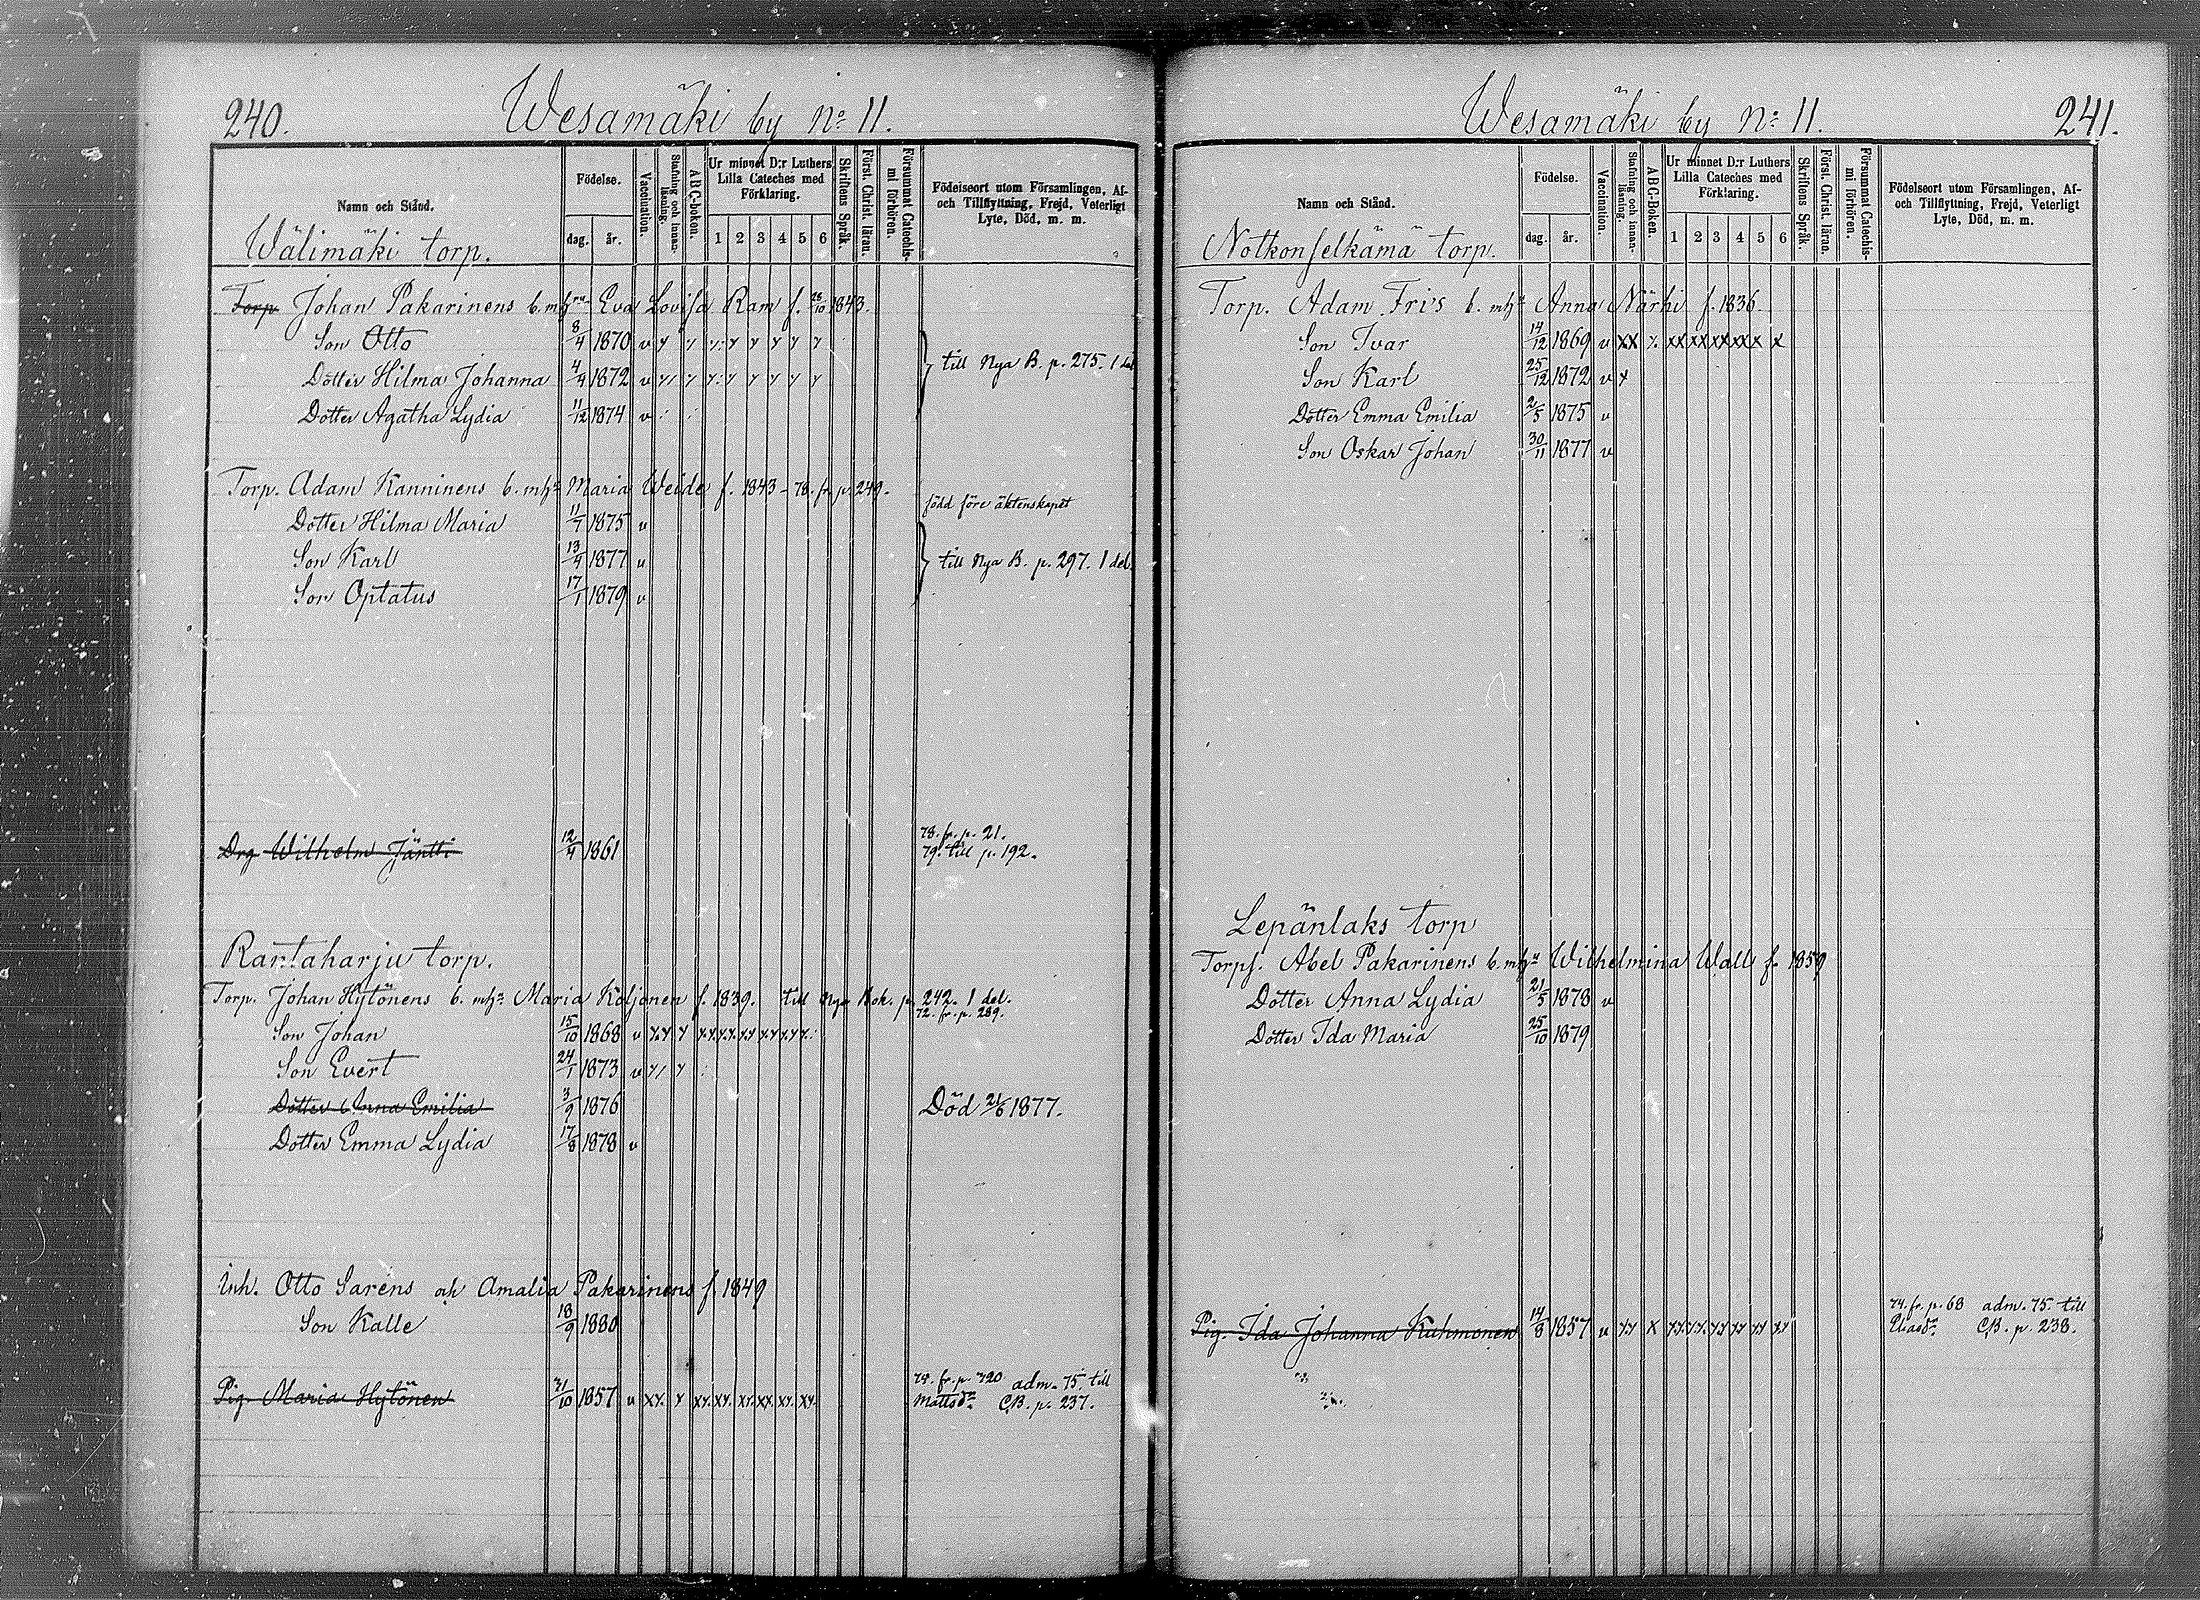 240.
Wesamäki by No 11.
Namn och Stånd.
Födelse.
dag.
år.
Vaccination.
Stafning och innan-
läsning.
ABC-boken.
Ur minnet D:r Luthers
Lilla Cateches med
Förklaring.
1 2 3 4 5 6
Skriftens Språk.
Först. Christ. lärau.
Försummat Catechis-
mi förhören.
Födelseort utom Församlingen, Af-
och Tillflyttning, Frejd, Veterligt
Lyte, Död, m. m.
Wälimäki torp.
Torp Johan Pakarinens b. mhru Eva Lovisa Ram f. 28/10 1843.
Son Otto 8/4 1870 v
Dotter Hilma Johanna 4/4 1872 v
till Nya B. p. 275. 1 del
Dotter Agatha Lydia 11/12 1874 v
Torp. Adam Kanninens b. mha Maria Weide f. 1843 - 78. fr. p. 249.
född före äktenskapet
Dotter Hilma Maria 11/7 1875 v
Son Karl 13/4 1877 v
till Nya B. p. 297. 1 del.
Son Optatus 17/1 1879 v
78. fr. p. 21.
Drg Wilhelm Jäntti 12/4 1861 79. till p. 192.
Rantaharju torp.
Torp. Johan Hytönens b. mha Maria Koljonen f. 1839. till Nya Bok. p. 242. 1 del.
72. fr. p. 289.
Son Johan 15/10 1868 v
Son Evert 24/1 1873 v
Dotter Anna Emilia 3/9 1876 Död 21/6 1877.
Dotter Emma Lydia 17/8 1878 v
Inh. Otto Sarens och Amalia Pakarinens f. 1849
Son Kalle 18/9 1880
74. fr. p. 320 adm. 75. till
Pig. Maria Hytönen 31/10 1857 v Mattsdr CB. p. 237.
241.
Wesamäki by No 11.
Namn och Stånd.
Födelse.
dag.
år.
Vaccination.
Stafning och innan-
läsning.
ABC-Boken.
Ur minnet D:r Luthers
Lilla Cateches med
Förklaring.
1 2 3 4 5 6
Skriftens Språk.
Först. Christ. lärau.
Försummat Catechis-
mi förhören.
Födelseort utom Församlingen, Af-
och Tillflyttning, Frejd, Veterligt
Lyte, Död, m. m.
Notkonselkämä torp.
Torp. Adam Fris b. mha Anna Närhi f. 1836.
Son Ivar 14/12 1869 v
Son Karl 25/12 1872 v
Dotter Emma Emilia 2/5 1875 v
Son Oskar Johan 30/11 1877 v
Lepänlaks torp
Torps. Abel Pakarinens b. mha Wilhelmina Wall f. 1859
Dotter Anna Lydia 21/5 1878 v
Dotter Ida Maria 25/10 1879
74. fr. p. 68 adm. 75. till
Pig. Ida Johanna Kuhmonen 14/8 1857 v Eliasdr CB. p. 238.